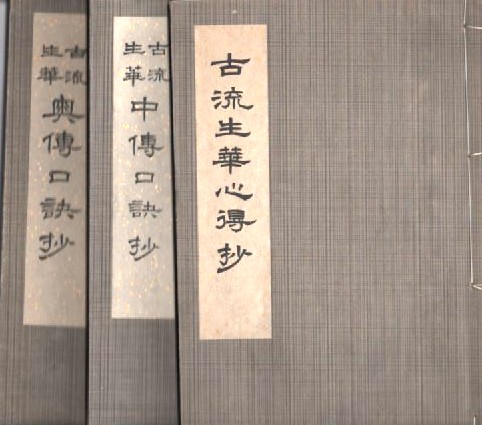 古流生華心得抄
古流
生華
中傳口訣抄
古流
生華
奥傳口訣抄